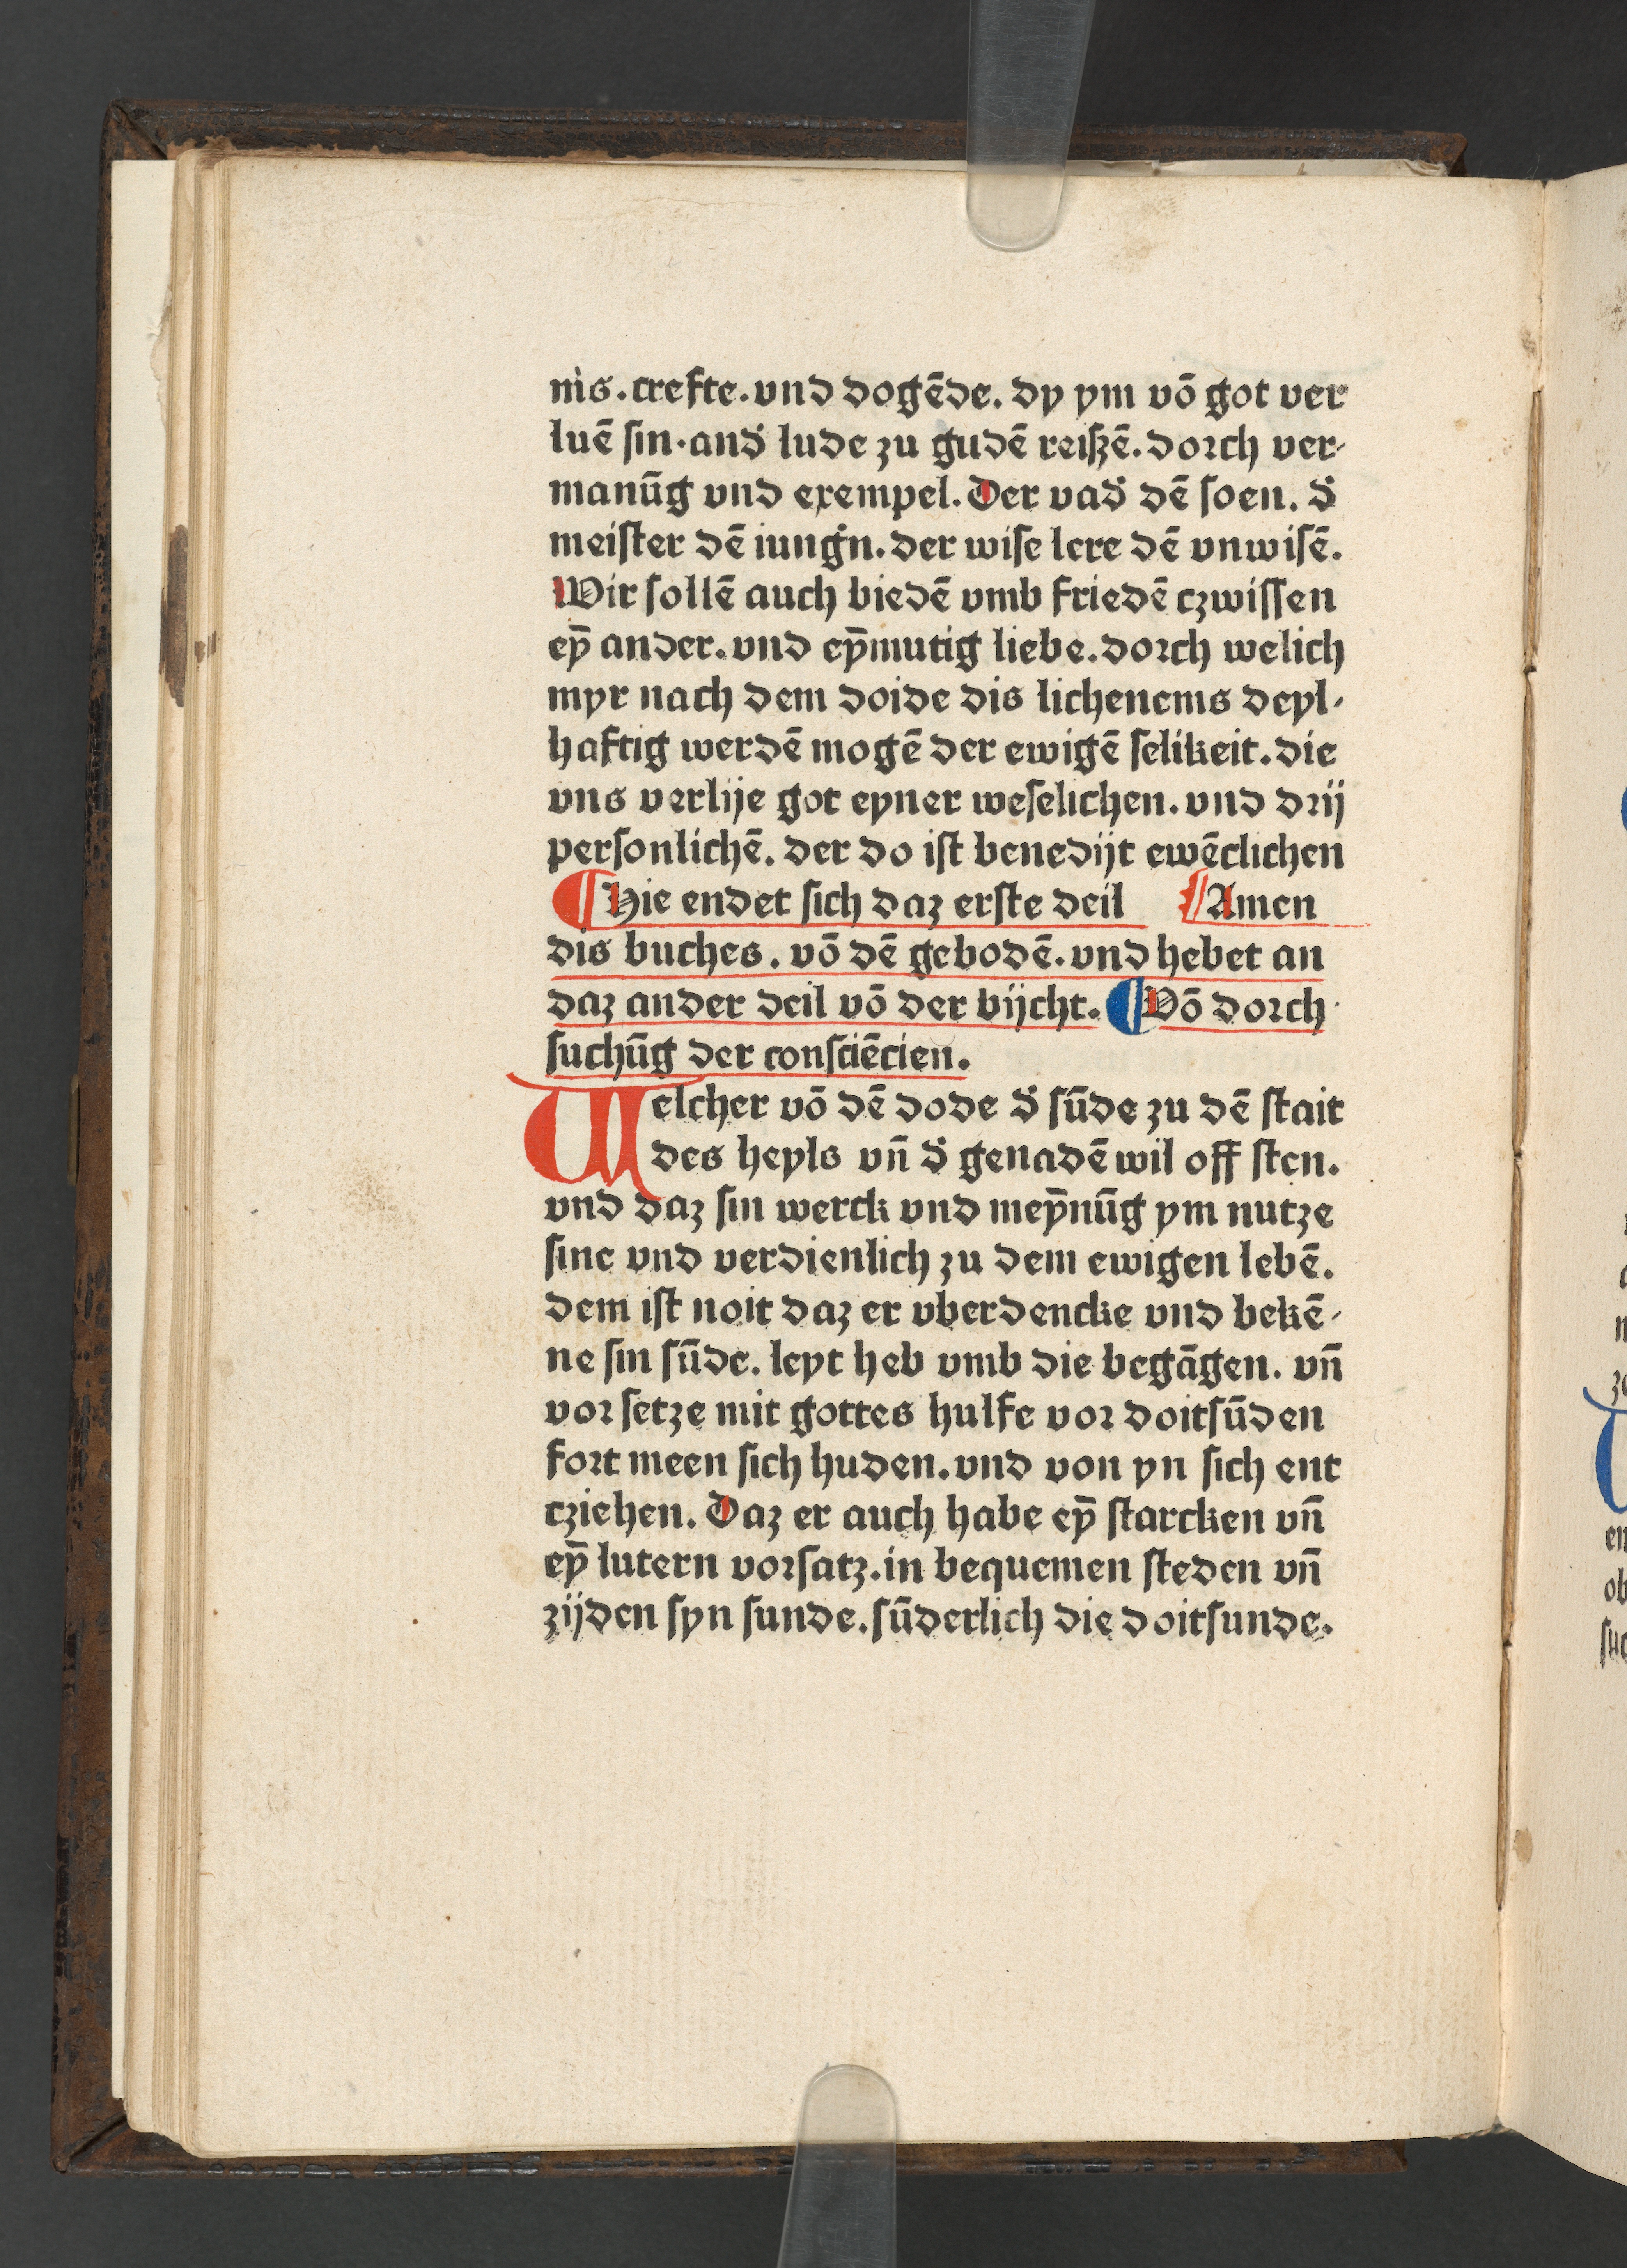 nis. crefte. vnd dogēde. dy ym vō got ver
luē ſin. and̕ lude zu gudē reiſzē. dorch ver-
manūg vnd exempel. Der vad̕ dē ſoen. d̕
meiſter dē iung̕n. der wiſe lere dē vnwiſē.
Wir ſollē auch biedē vmb friedē czwiſſen
eȳ ander. vnd eȳmutig liebe. dorch welich
myr nach dem doide dis lichenems deyl-
haftig werdē mogē der ewigē ſelikeit. die
vns verlije got eyner weſelichen. vnd drij
perſonlichē. der do iſt benedijt ewēclichen
¶ Hie endet ſich daz erſte deil ¶ Amen
dis buches. vō dē gebodē. vnd hebet an
daz ander deil vō der bijcht. ¶ Vō dorch-
ſuchūg der conſciēcien.
Welcher vō dē dode d̕ ſūde zu dē ſtait
des heyls vn̄ d̕ genadē wil off ſten.
vnd daz ſin werck vnd meȳnūg ym nutze
ſine vnd verdienlich zu dem ewigen lebē.
dem iſt noit daz er vberdencke vnd bekē-
ne ſin ſūde. leyt heb vmb die begāgen. vn̄
vor ſetze mit gottes hulfe vor doitſūden
fort meen ſich huden. vnd von yn ſich ent
cziehen. Daz er auch habe eȳ ſtarcken vn̄
eȳ lutern vorſatz. in bequemen ſteden vn̄
zijden ſyn ſunde. ſūderlich die doitſunde.